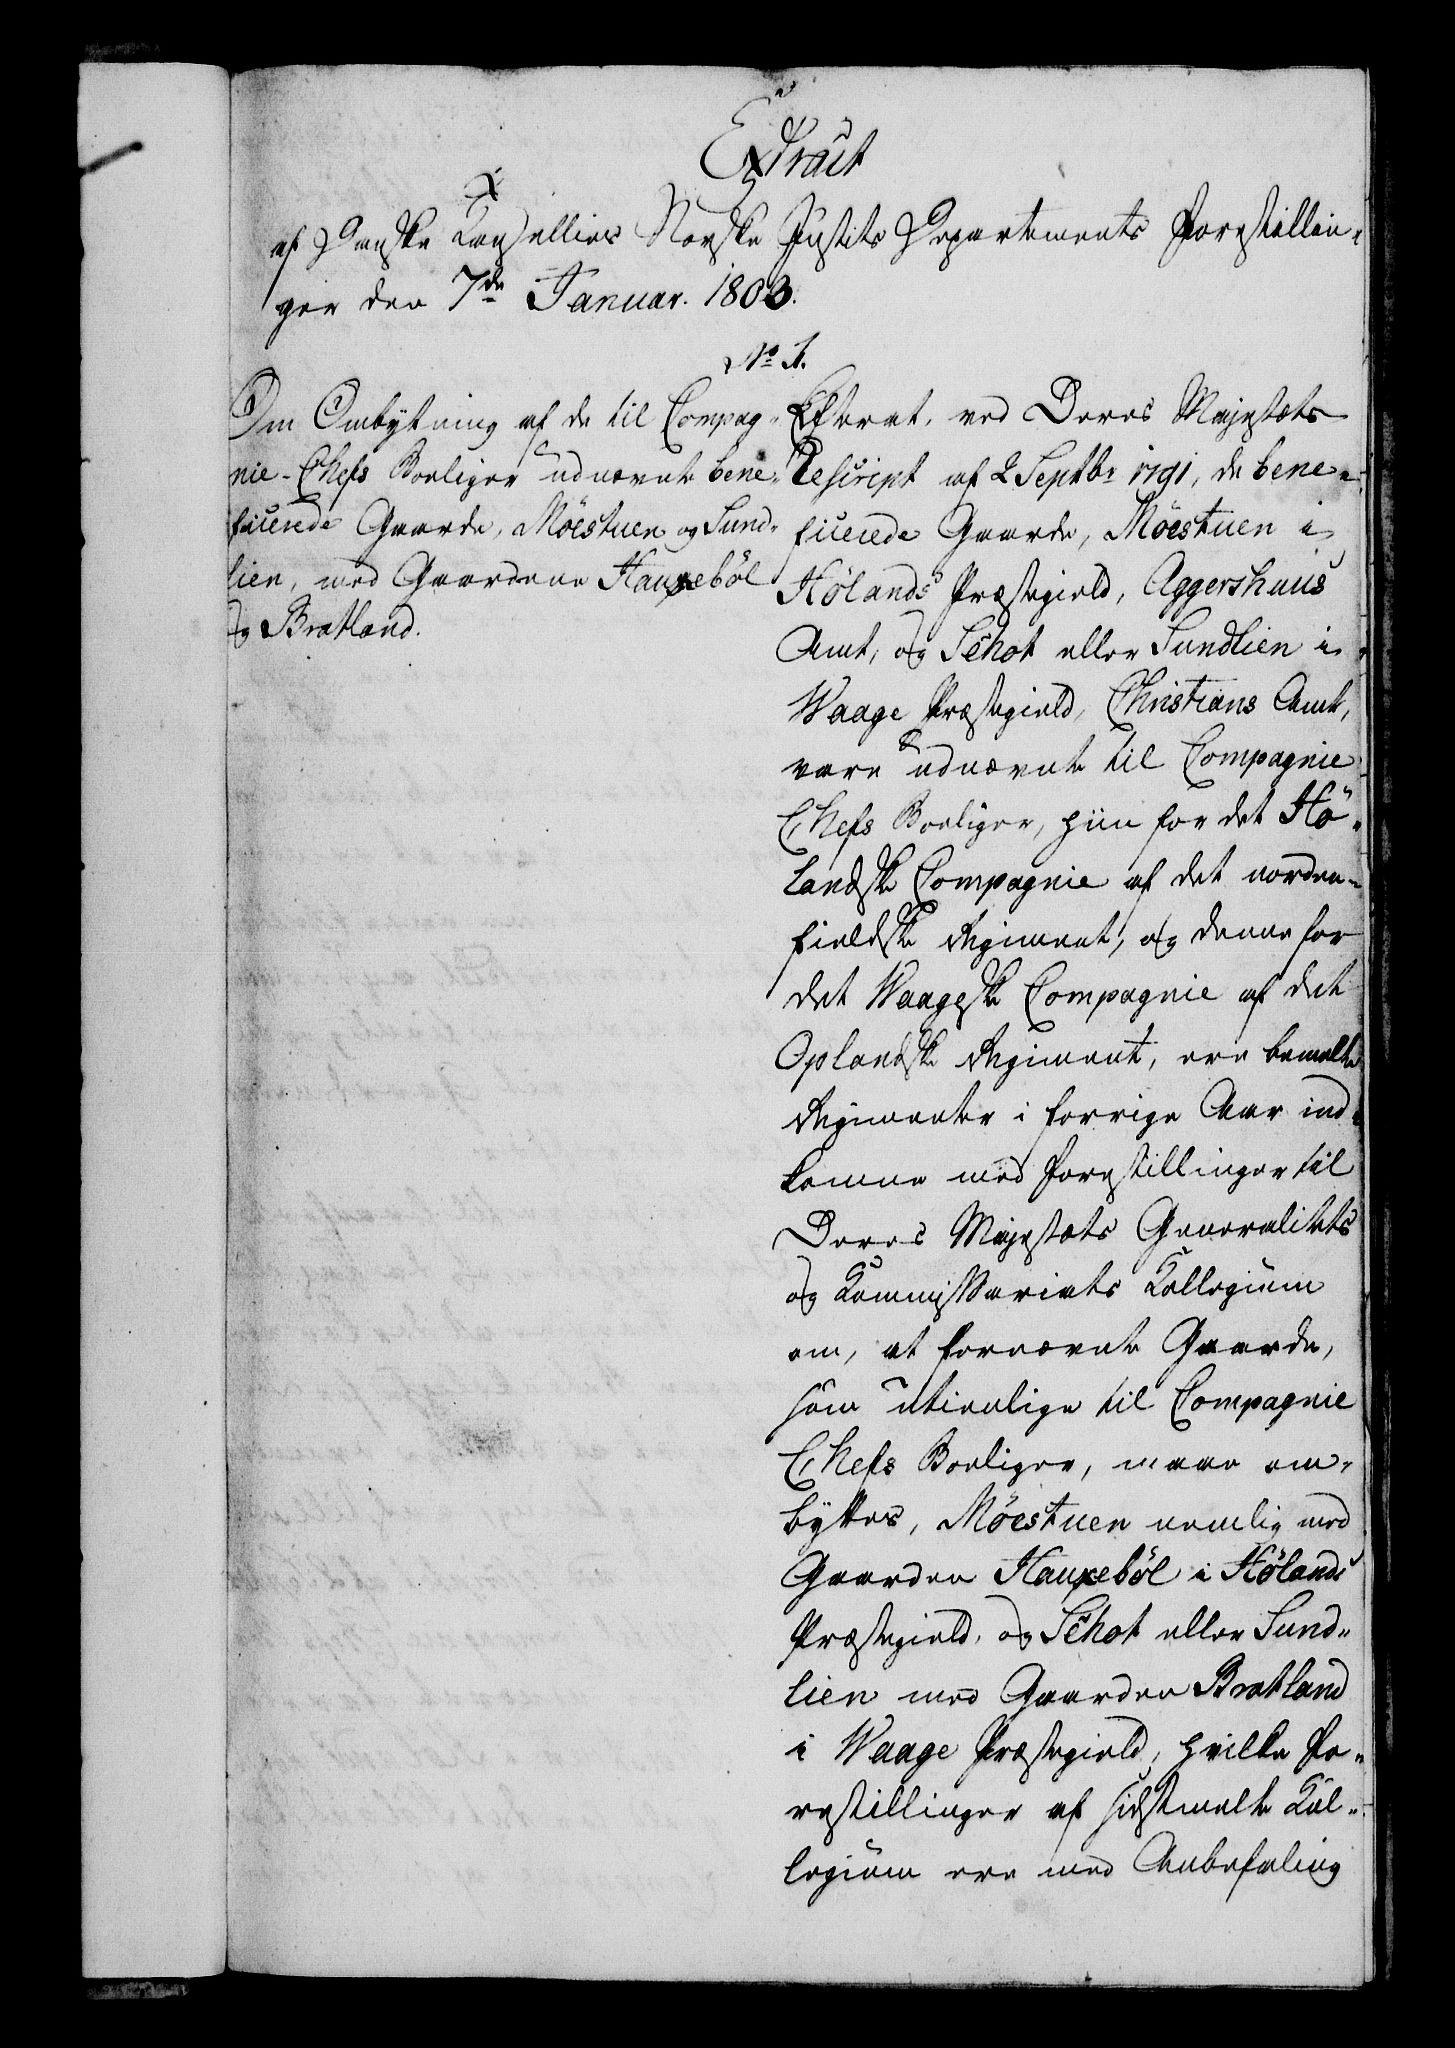 Extract
af Danske Kancelliets Norske Justits Departements Forestillin-
ger den 7de Januar. 1803.
No 1.
Om Ombytning af de til Compag-
nie-Chefs Boeliger udnævnte bene-
ficerede Gaarde, Möestuen og Sund-
lien, med Gaardene Hauxeböl
og Bratland.
Efterat, ved Deres Majestæts
Rescript af 2 Septbr 1791, de bene-
ficerede Gaarde, Möestuen i
Hölands Præstegield, Aggershuus
Amt, og Schot eller Sundlien i
Waage Præstegield, Christians Amt,
vare udnævnte til Compagnie
Chefs Boeliger, hiin for det Hö-
landske Compagnie af det norden-
fieldske Regiment, og denne for
det Waageske Compagnie af det
Oplandske Regiment, ere bemelte
Regimenter i forrige Aar ind-
komne med Forestillinger til
Deres Majestæts Generalitets
og Kommissariats Kollegium
om, at fornævnte Gaarde,
som utienlige til Compagnie
Chefs Boeliger, maae om-
byttes, Möestuen nemlig med
Gaarden Hauxeböl i Hölands
Præstegield, og Schot eller Sund-
lien med Gaarden Bratland
i Waage Præstegield, hvilke Fo-
restillinger af sidstmelte Kol-
legium ere med Anbefaling